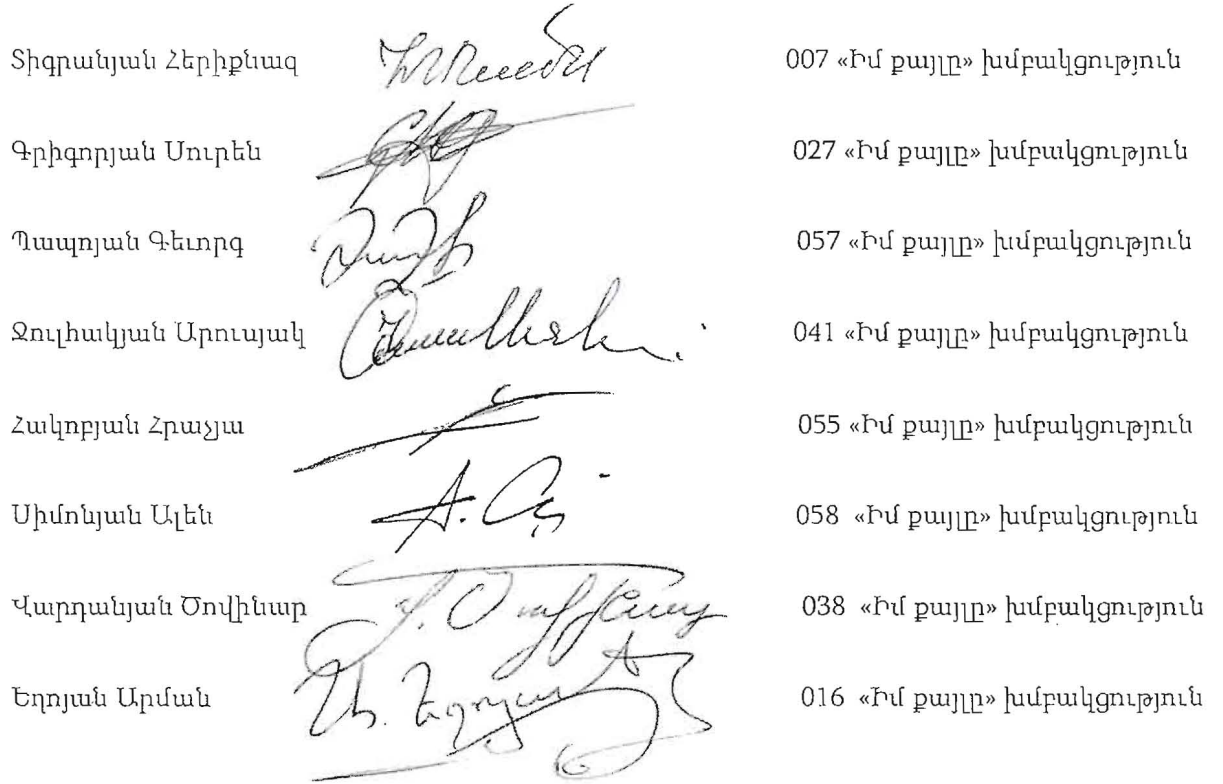 Տիգրանյան Հերիքնազ 007 «Իմ քայլը» խմբակցություն
Գրիգորյան Սուրեն 027 «Իմ քայլը» խմբակցություն
Պապոյան Գեւորգ 057 «Իմ քայլը» խմբակցություն
Ջուլհակյան Արուսյակ 041 «Իմ քայլը» խմբակցություն
Հակոբյան Հրաչյա 055 «Իմ քայլը» խմբակցություն
Սիմոնյան Ալեն 058 «Իմ քայլը» խմբակցություն
Վարդանյան Ծովինար 038 «Իմ քայլը» խմբակցություն
Եղոյան Արման 016 «Իմ քայլը» խմբակցություն